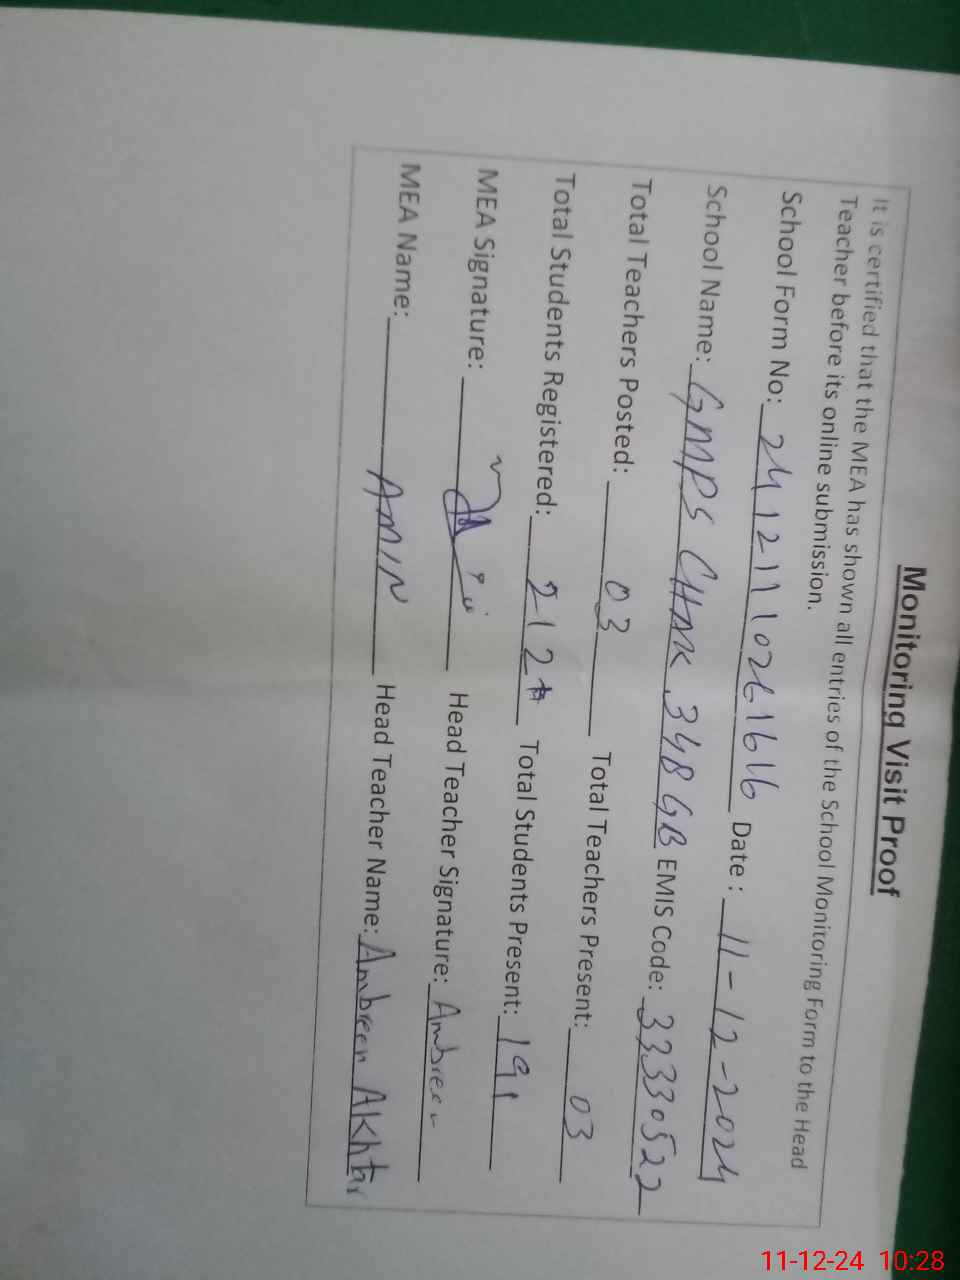 Monitoring Visit Proof
It is certified that the MEA has shown all entries of the School Monitoring Form to the Head
Teacher before its online submission.
School Form No: Date : 11-12-2024
School Name: GMPS CHAK 348 GB EMIS Code: 33330522
Total Teachers Posted: 03 Total Teachers Present: 03
Total Students Registered: 212 Total Students Present: 191
MEA Signature: Head Teacher Signature: Ambreen
MEA Name: AMIN Head Teacher Name: Ambreen Akhtar
11-12-24 10:28